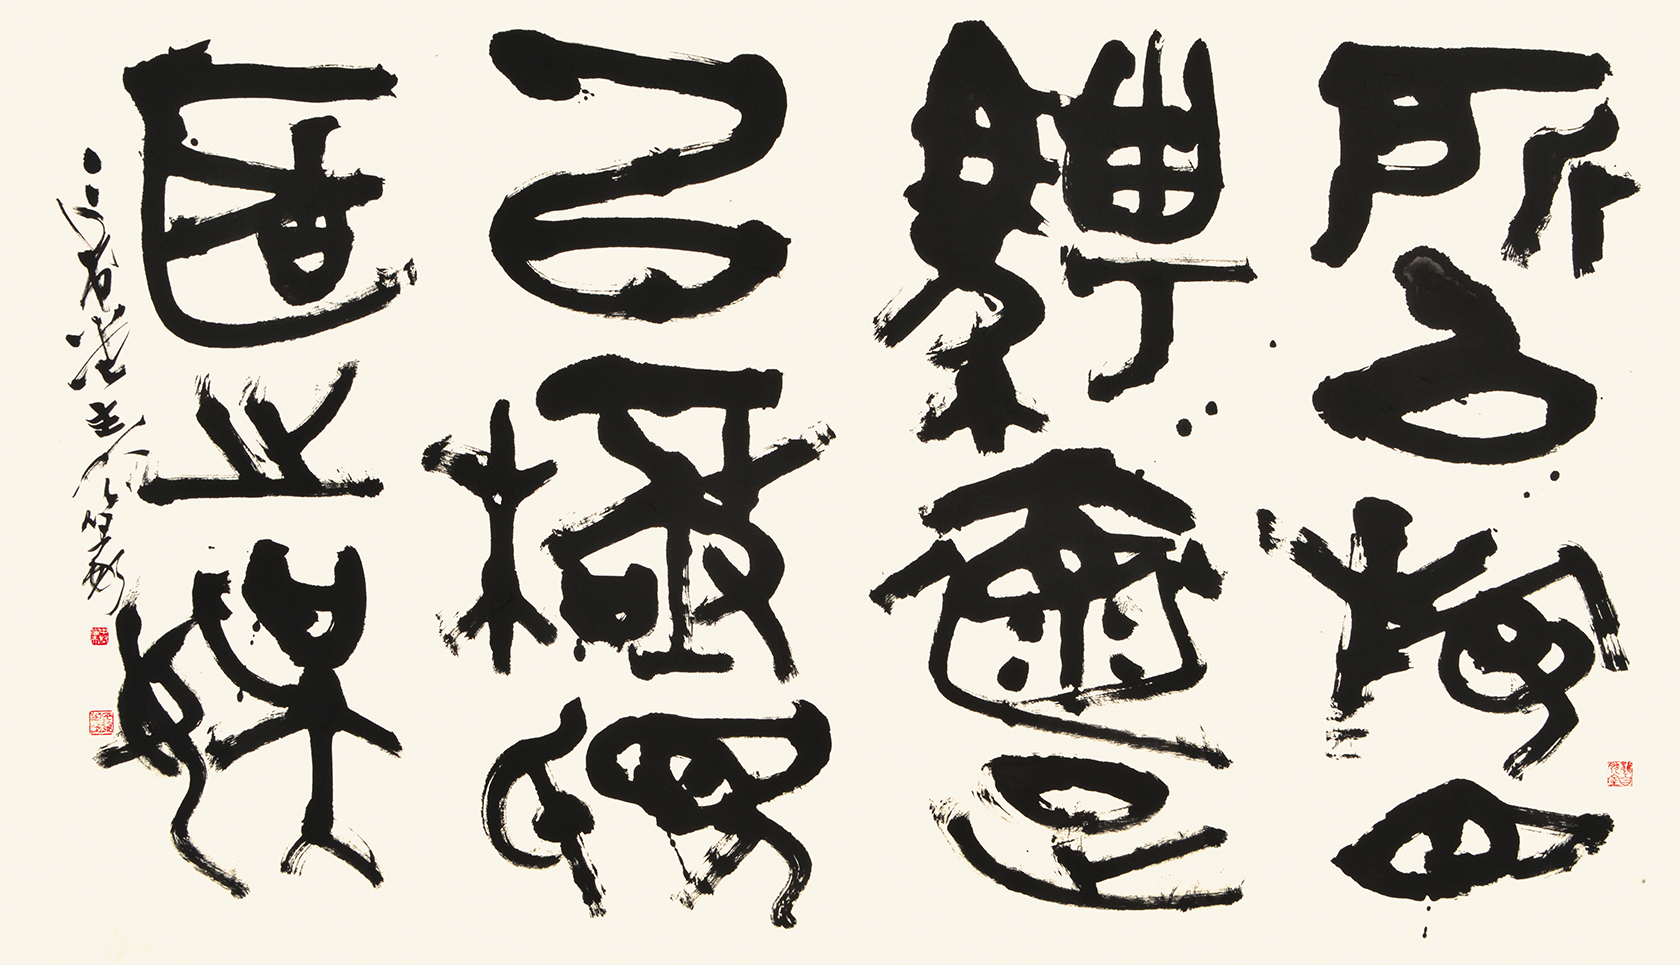 所以游目
騁懷足
以極視
聽之娛